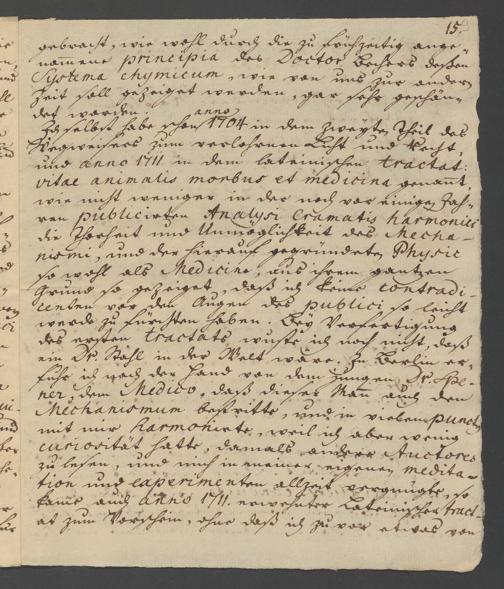 15.
gebracht, wie wohl durch die zu frühzeitig ange-
nommene principia des Doctor Bechers deßen
Systema chymicum, wie von uns zur andern
Zeit soll gezeiget werden, gar sehr geschän-
det worden.
Ich selbst habe schon anno 1704 in dem zweyten Theil des
Wegweisers zum verlohrnen Licht und Recht,
und anno 1711 in dem lateinischen tractat:
vitae animalis morbus et medicina genannt,
wie nicht weniger in der noch vor einigen Jah-
ren publicirten Analysi Cramatis harmonici
die Thorheit und Unmöglichkeit des Mecha-
nismi, und der hierauf gegründeten Physic
so wohl als Medicine, aus ihrem gantzen
Grund so gezeiget, daß ich keine contradi-
centen vor den Augen des publici so leicht
werde zu fürchten haben. Bey Verfertigung
des ersten tractats, wuste ich noch nicht, daß
ein Dr. Stahl in der Welt wäre. Zu Berlin er-
fuhr ich nach der Hand von dem jungen Dr. Spe-
ner, dem Medico, daß dieser Man auch den
Mechanismum bestritte, und in vielen punctis
mit mir harmonirte, weil ich aber wenig
curiosität hatte, damals andere Auctores
zu lesen, und mich in meiner eigenen medita-
tion und experimenten allzeit vergnügte, so
kame auch anno 1711. erwenter Lateinischer tract-
at zum Vorschein, ohne daß ich zuvor etwas von